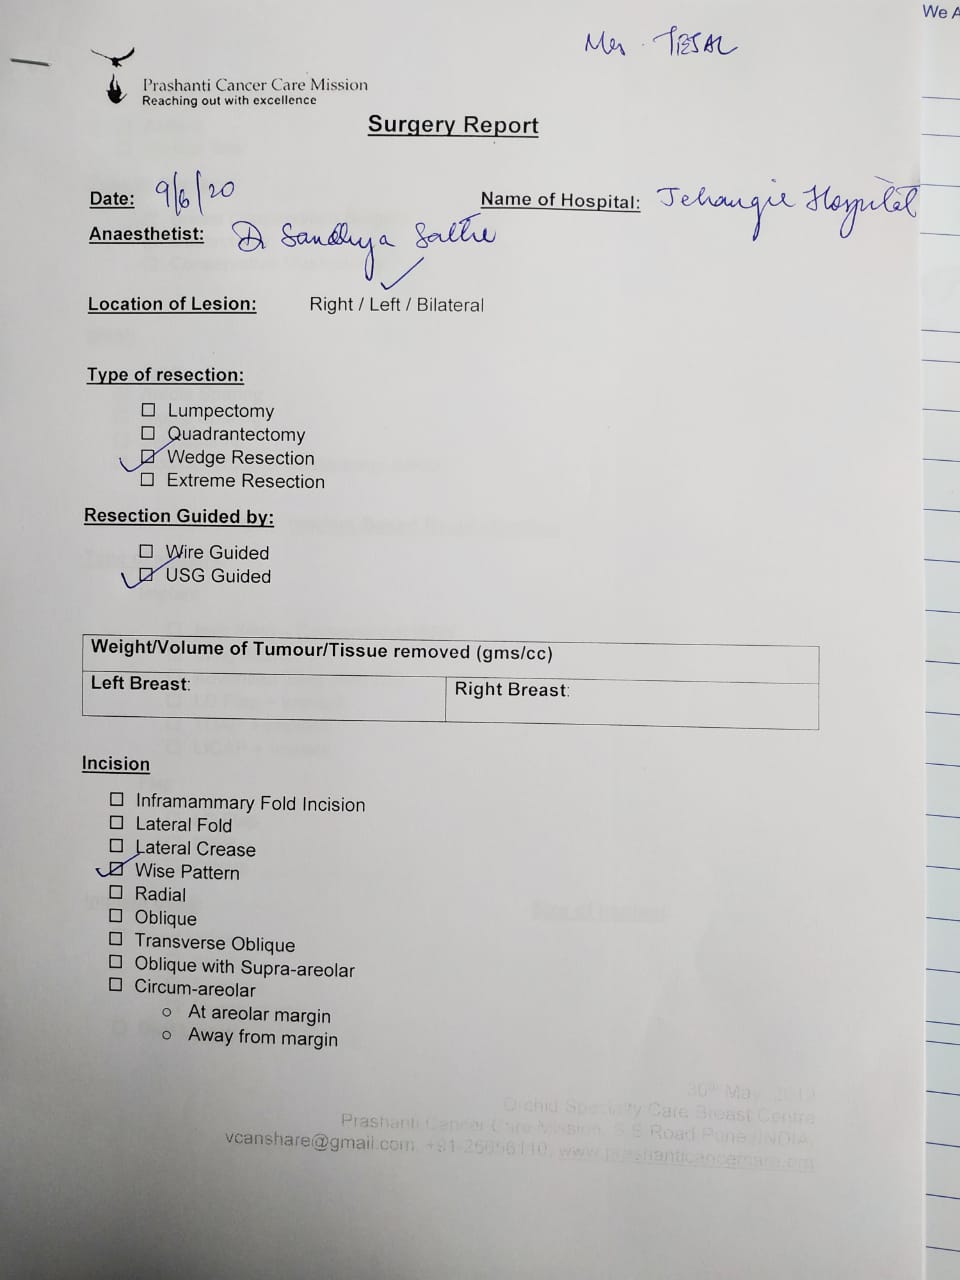 We A
Mrs. TESAL
Prashanti Cancer Care Mission
Reaching out with excellence
Surgery Report
Date: 9/6/20 Name of Hospital: Jehangir Hospital
Anaesthetist: Dr Sandhya
Location of Lesion: Right / Left / Bilateral
Type of resection:
☐ Lumpectomy
☐ Quadrantectomy
☑ Wedge Resection
☐ Extreme Resection
Resection Guided by:
☐ Wire Guided
☑ USG Guided
Weight/Volume of Tumour/Tissue removed (gms/cc)
Left Breast: Right Breast:
Incision
☐ Inframammary Fold Incision
☐ Lateral Fold
☐ Lateral Crease
☑ Wise Pattern
☐ Radial
☐ Oblique
☐ Transverse Oblique
☐ Oblique with Supra-areolar
☐ Circum-areolar
o At areolar margin
o Away from margin
30th May, 2019
Orchid Specialty Care Breast Centre
Prashanti Cancer Care Mission, S B Road Pune, INDIA
vcanshare@gmail.com, +91-25656110, www.prashanticancercare.om